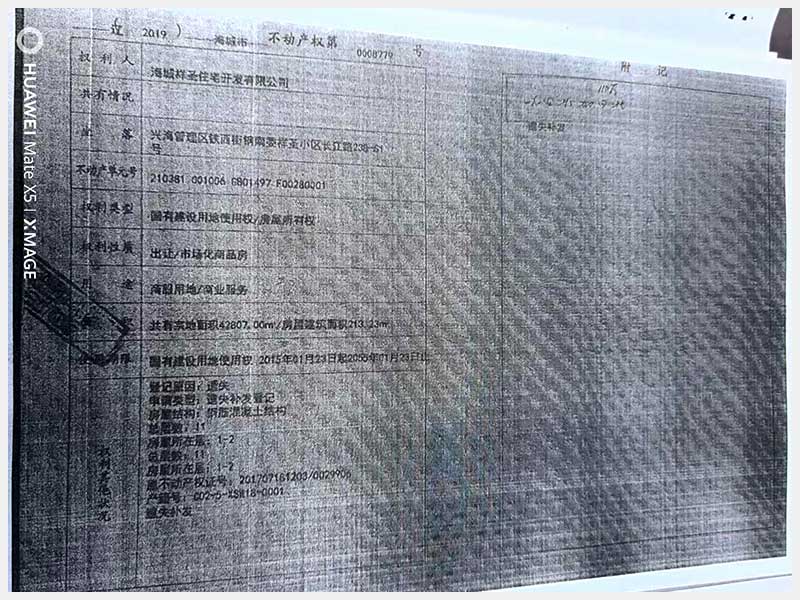 辽(2019)海城市不动产权第0008779号
权利人 海城祥圣住宅开发有限公司
共有情况
坐落 兴海管理区铁西街钢南委祥圣小区长江路238-S1
号
不动产单元号 210381 001006 GB01497 F00280001
权利类型 国有建设用地使用权/房屋所有权
权利性质 出让/市场化商品房
用途 商服用地/商业服务
面积 共有宗地面积42807.00㎡/房屋建筑面积213.23㎡
使用期限 国有建设用地使用权 2015年01月23日起2055年01月23日止
权利其他状况
登记原因：遗失
申请类型：遗失补发登记
房屋结构：钢筋混凝土结构
总层数：11
房屋所在层：1-2
总层数：11
房屋所在层：1-2
原不动产权证号：201707161203/0029906
产籍号：C02-5-XSR18-0001
遗失补发
附记
遗失补发
HUAWEI Mate X5 | XMAGE